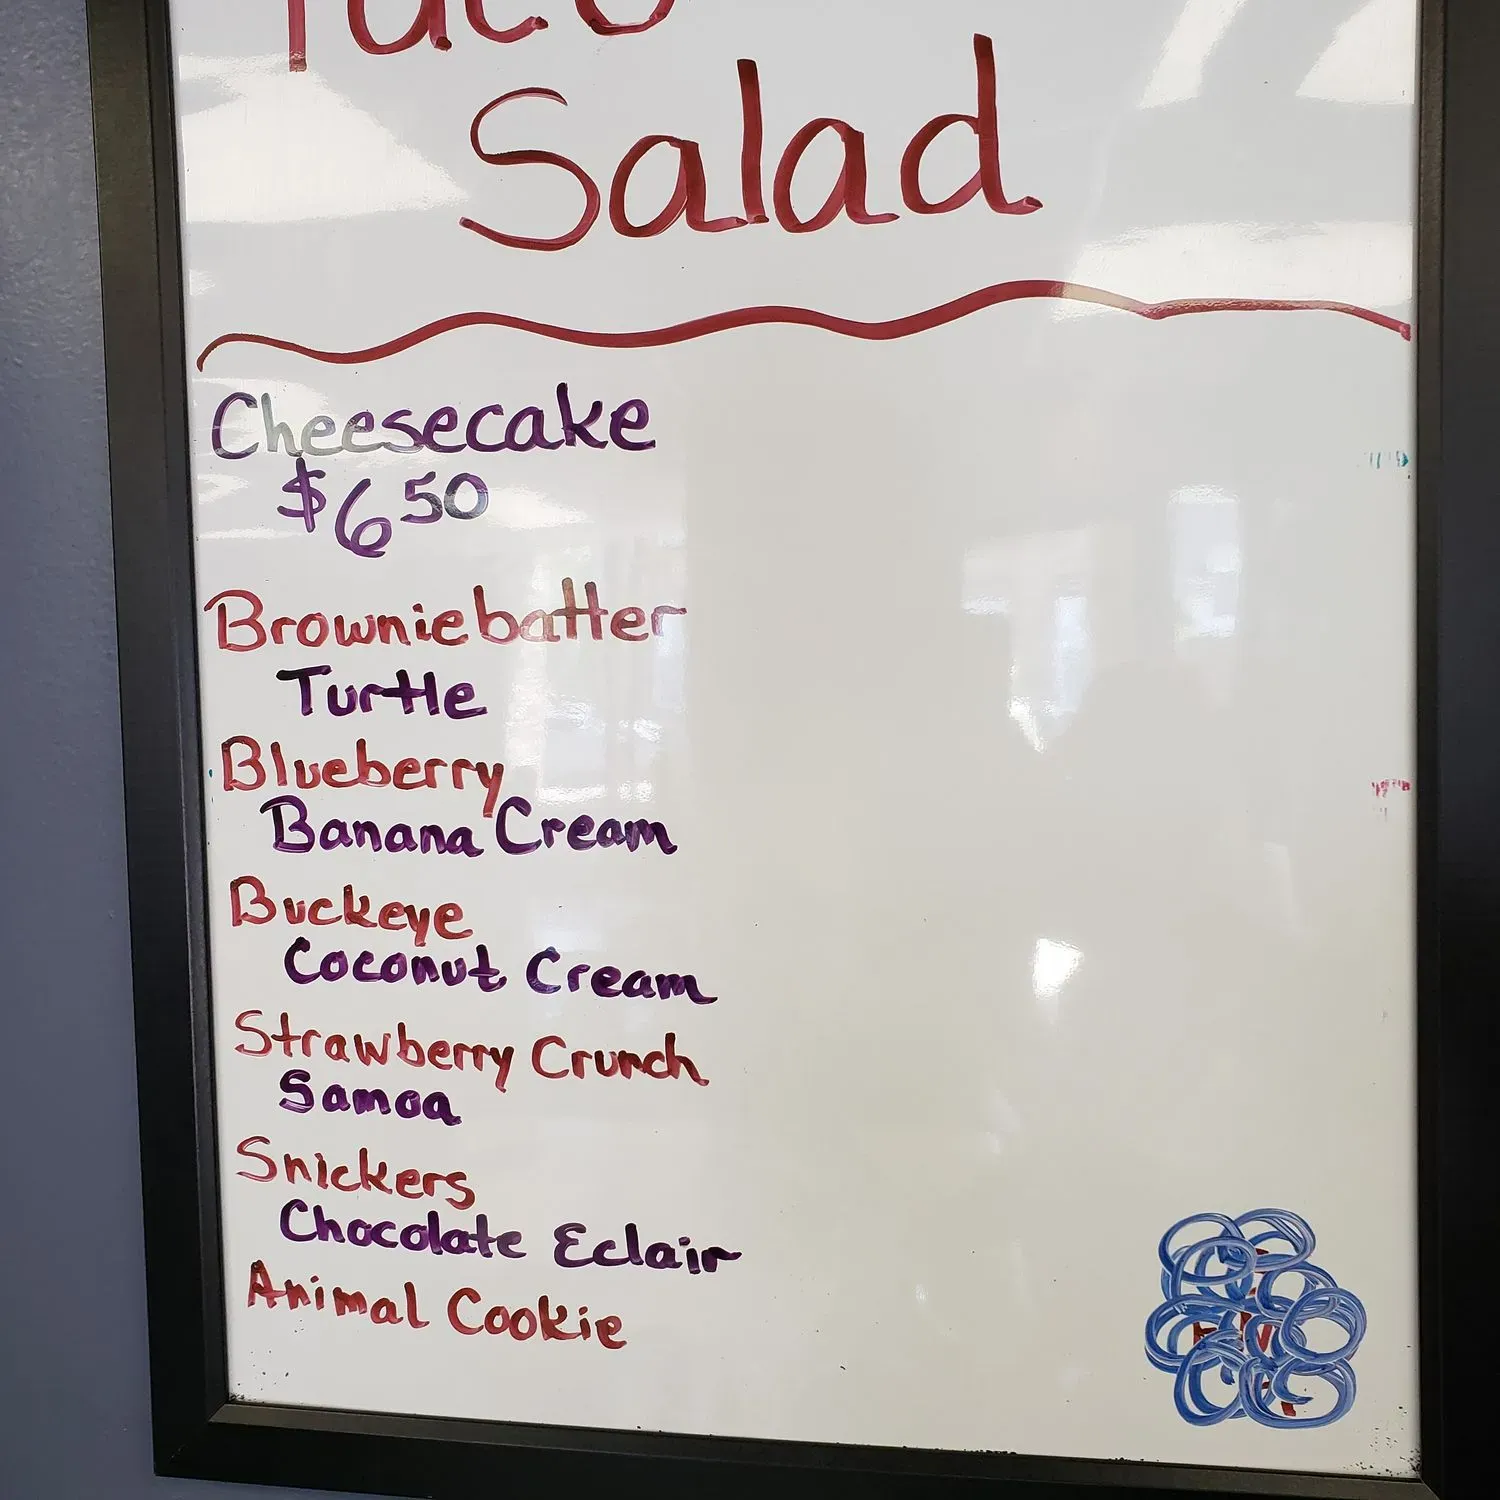 Taco
Salad
Cheesecake
$6.50
Brownie batter
Turtle
Blueberry
Banana Cream
Buckeye
Coconut Cream
Strawberry Crunch
Samoa
Snickers
Chocolate Eclair
Animal Cookie